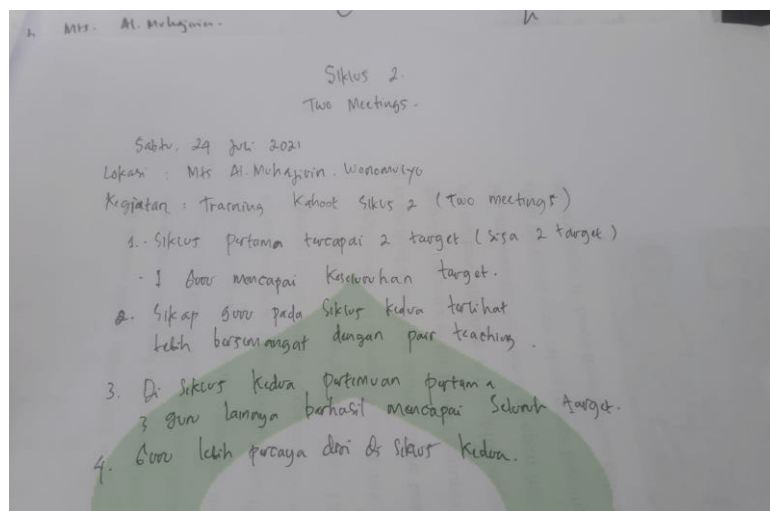 Mts. Al. Muhajirin.
Siklus 2.
Two Meetings.
Sabtu, 24 Juli 2021
Lokasi : Mts Al. Muhajirin. Wonomulyo
Kegiatan : Training Kahoot Siklus 2 (Two meetings)
1. - Siklus pertama tercapai 2 target (sisa 2 target)
- 1 Guru mencapai keseluruhan target.
2. Sikap guru pada siklus kedua terlihat
lebih bersemangat dengan pair teaching.
3. Di siklus kedua pertemuan pertama
3 guru lainnya berhasil mencapai seluruh target.
4. Guru lebih percaya diri di siklus kedua.